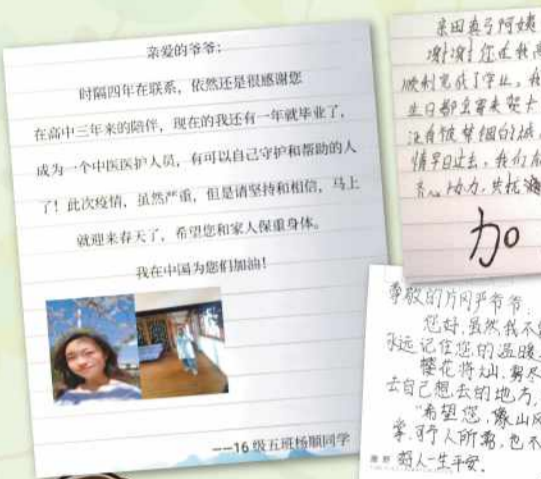 亲爱的爷爷：
时隔四年在联系，依然还是很感谢您
在高中三年来的陪伴，现在的我还有一年就毕业了，
成为一个中医医护人员，有可以自己守护和帮助的人
了！此次疫情，虽然严重，但是请坚持和相信，马上
就迎来春天了，希望您和家人保重身体。
我在中国为您们加油！
——16 级五班杨顺同学
真弓阿姨
谢谢您在我高
顺利完成了学业。我
情早日过去，我们
齐心协力，共抗
加
尊敬的片冈严爷爷：
您好，虽然我不
永远记住您的温暖
樱花将
去自己想去的地方
"希望您，像山风
掌，可予人所需，也不
好人一生平安.